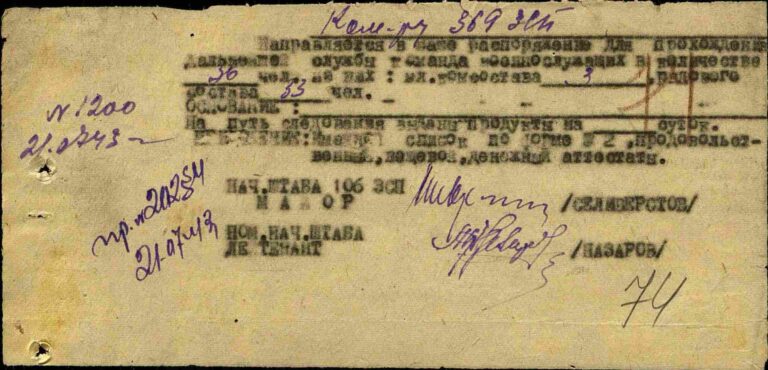 Ком-ру 369 ЗСП
Направляется в Ваше распоряжение для прохождения
дальнейшей службы команда военнослужащих в количестве
36 чел. из них: мл. комсостава 3, рядового
состава 33 чел. -
ОСНОВАНИЕ:
На путь следования выданы продукты на суток.
список по форме № 2, продовольст-
венный, вещевой, денежный аттестаты.
НАЧ.ШТАБА 106 ЗСП
МАЙОР /СЕЛИВЕРСТОВ/
ПОМ.НАЧ.ШТАБА
ЛЕ ТЕНАНТ /НАЗАРОВ/
N 1200
21.0743-
пр. №
21.07.43
74